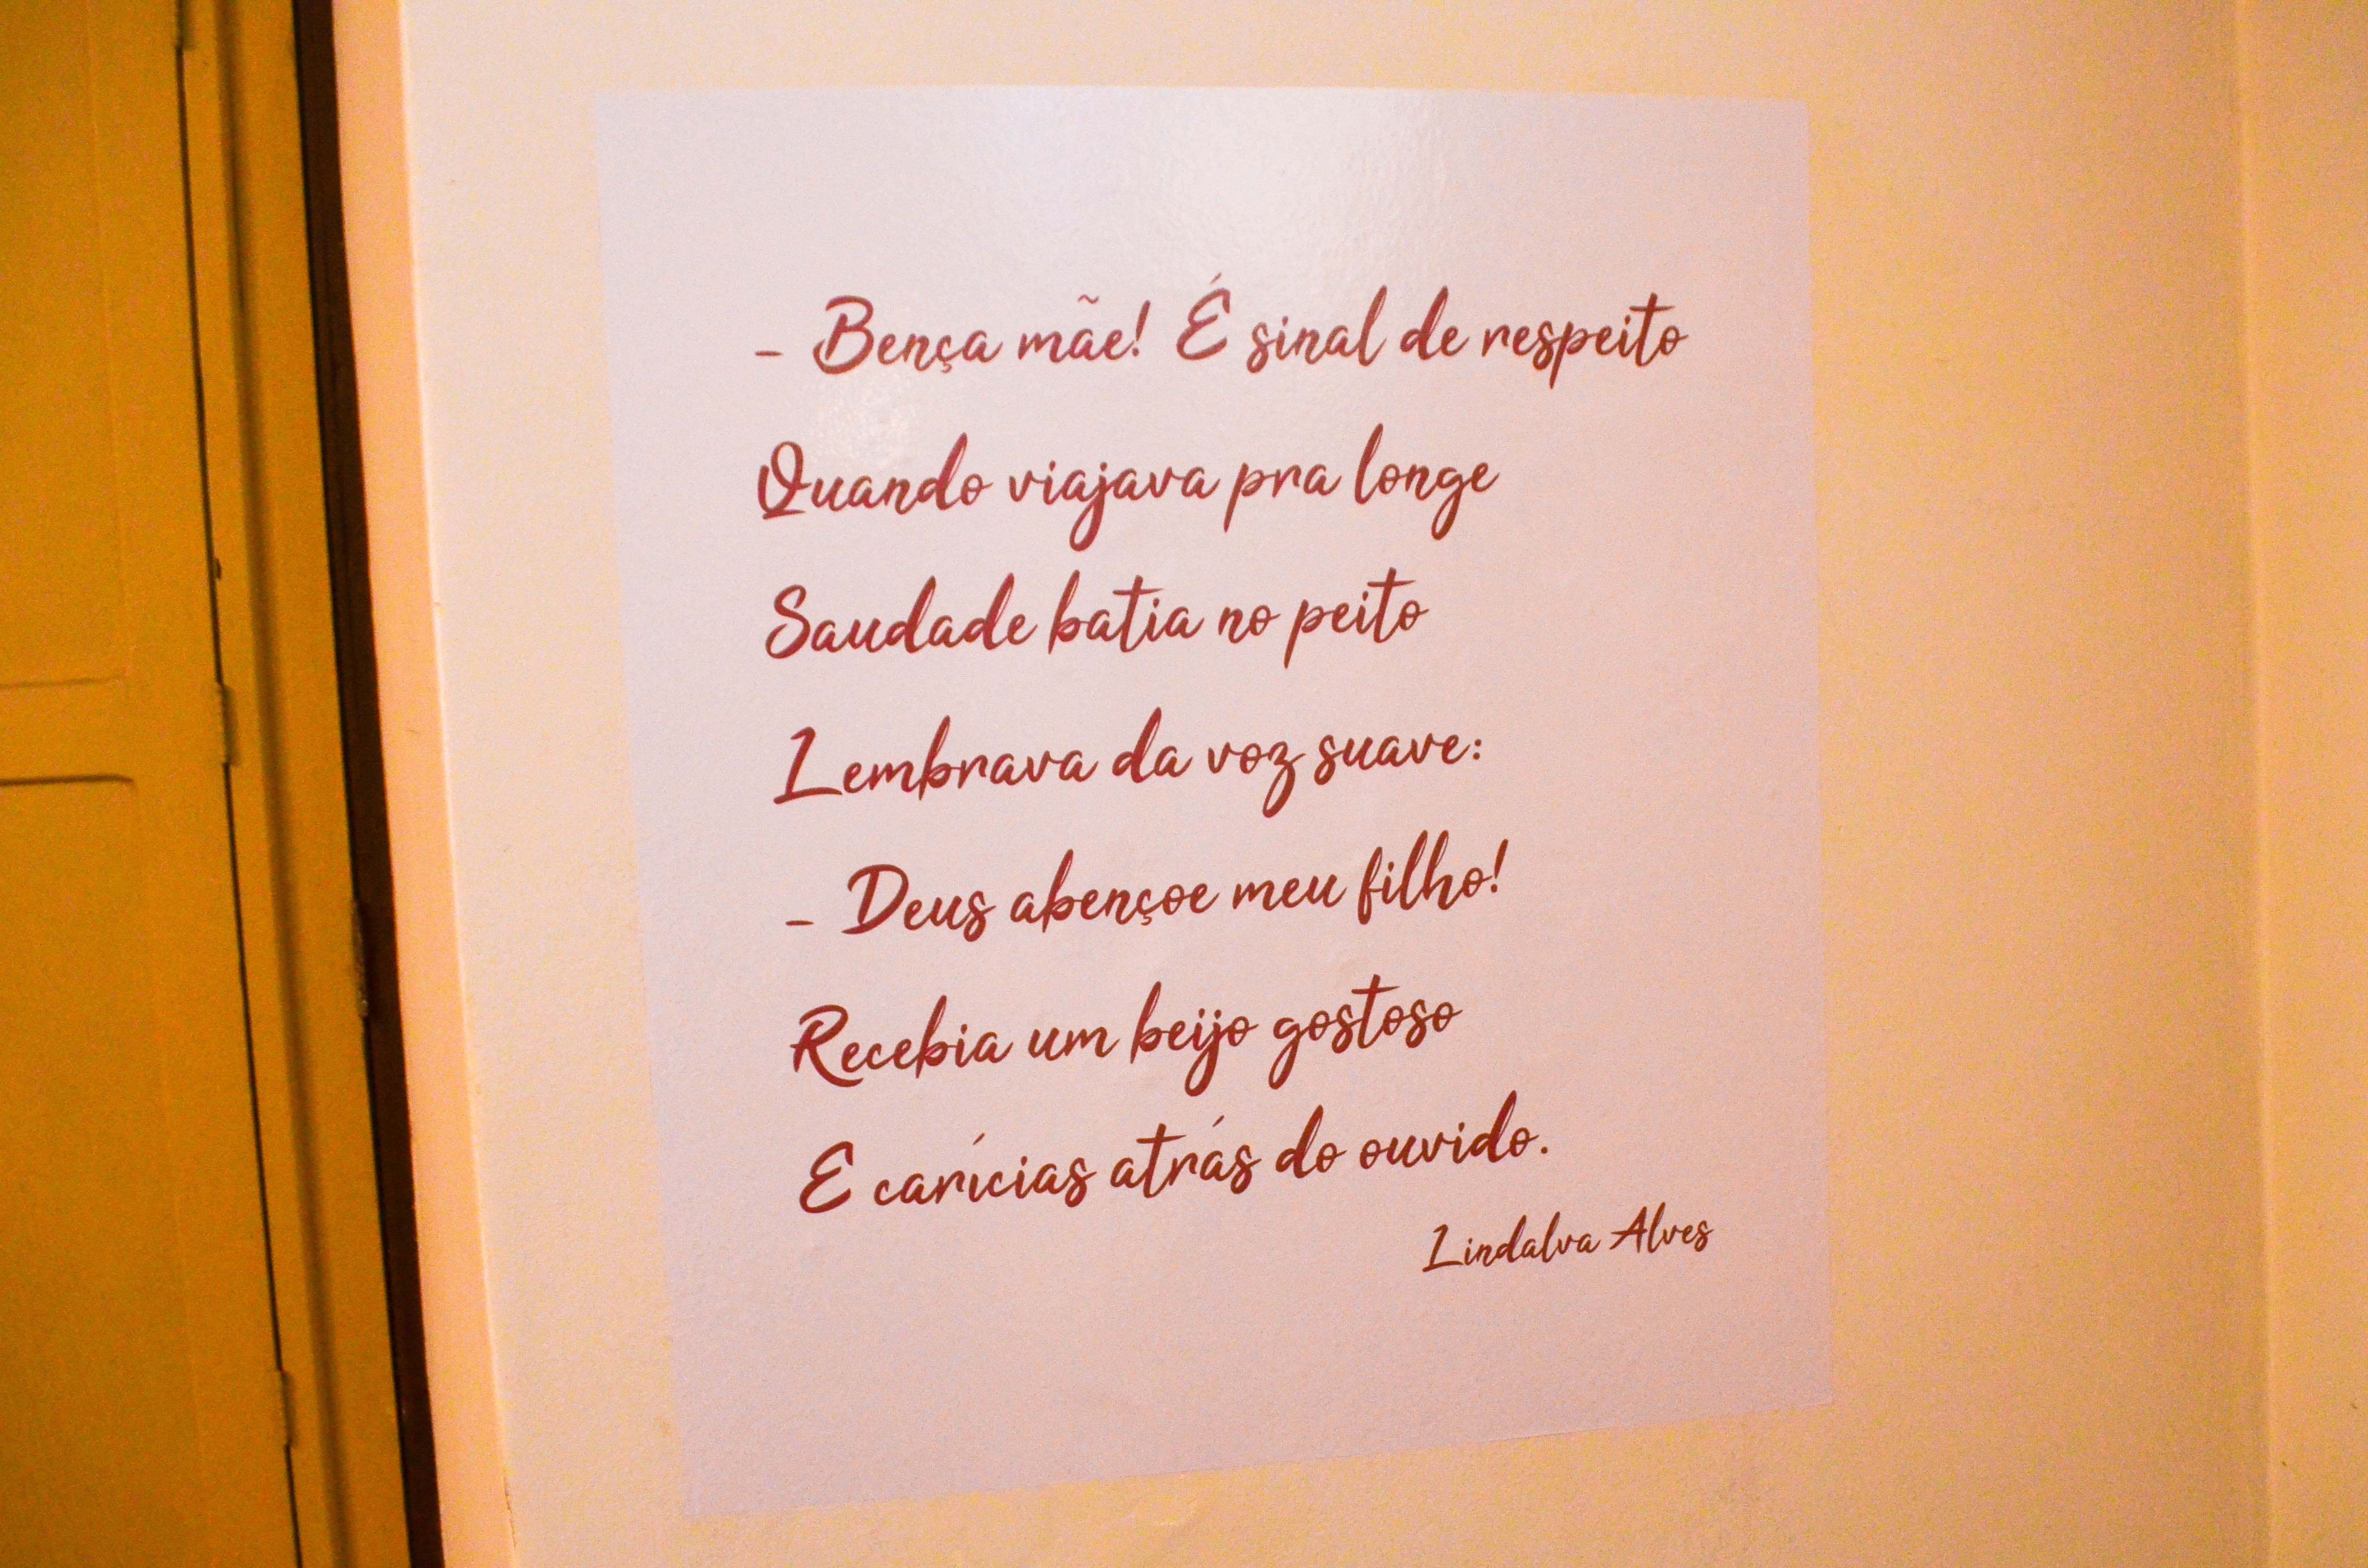 - Bença mãe! É sinal de respeito
Quando viajava pra longe
Saudade batia no peito
Lembrava da voz suave:
- Deus abençoe meu filho!
Recebia um beijo gostoso
E carícias atrás do ouvido.
Lindalva Alves